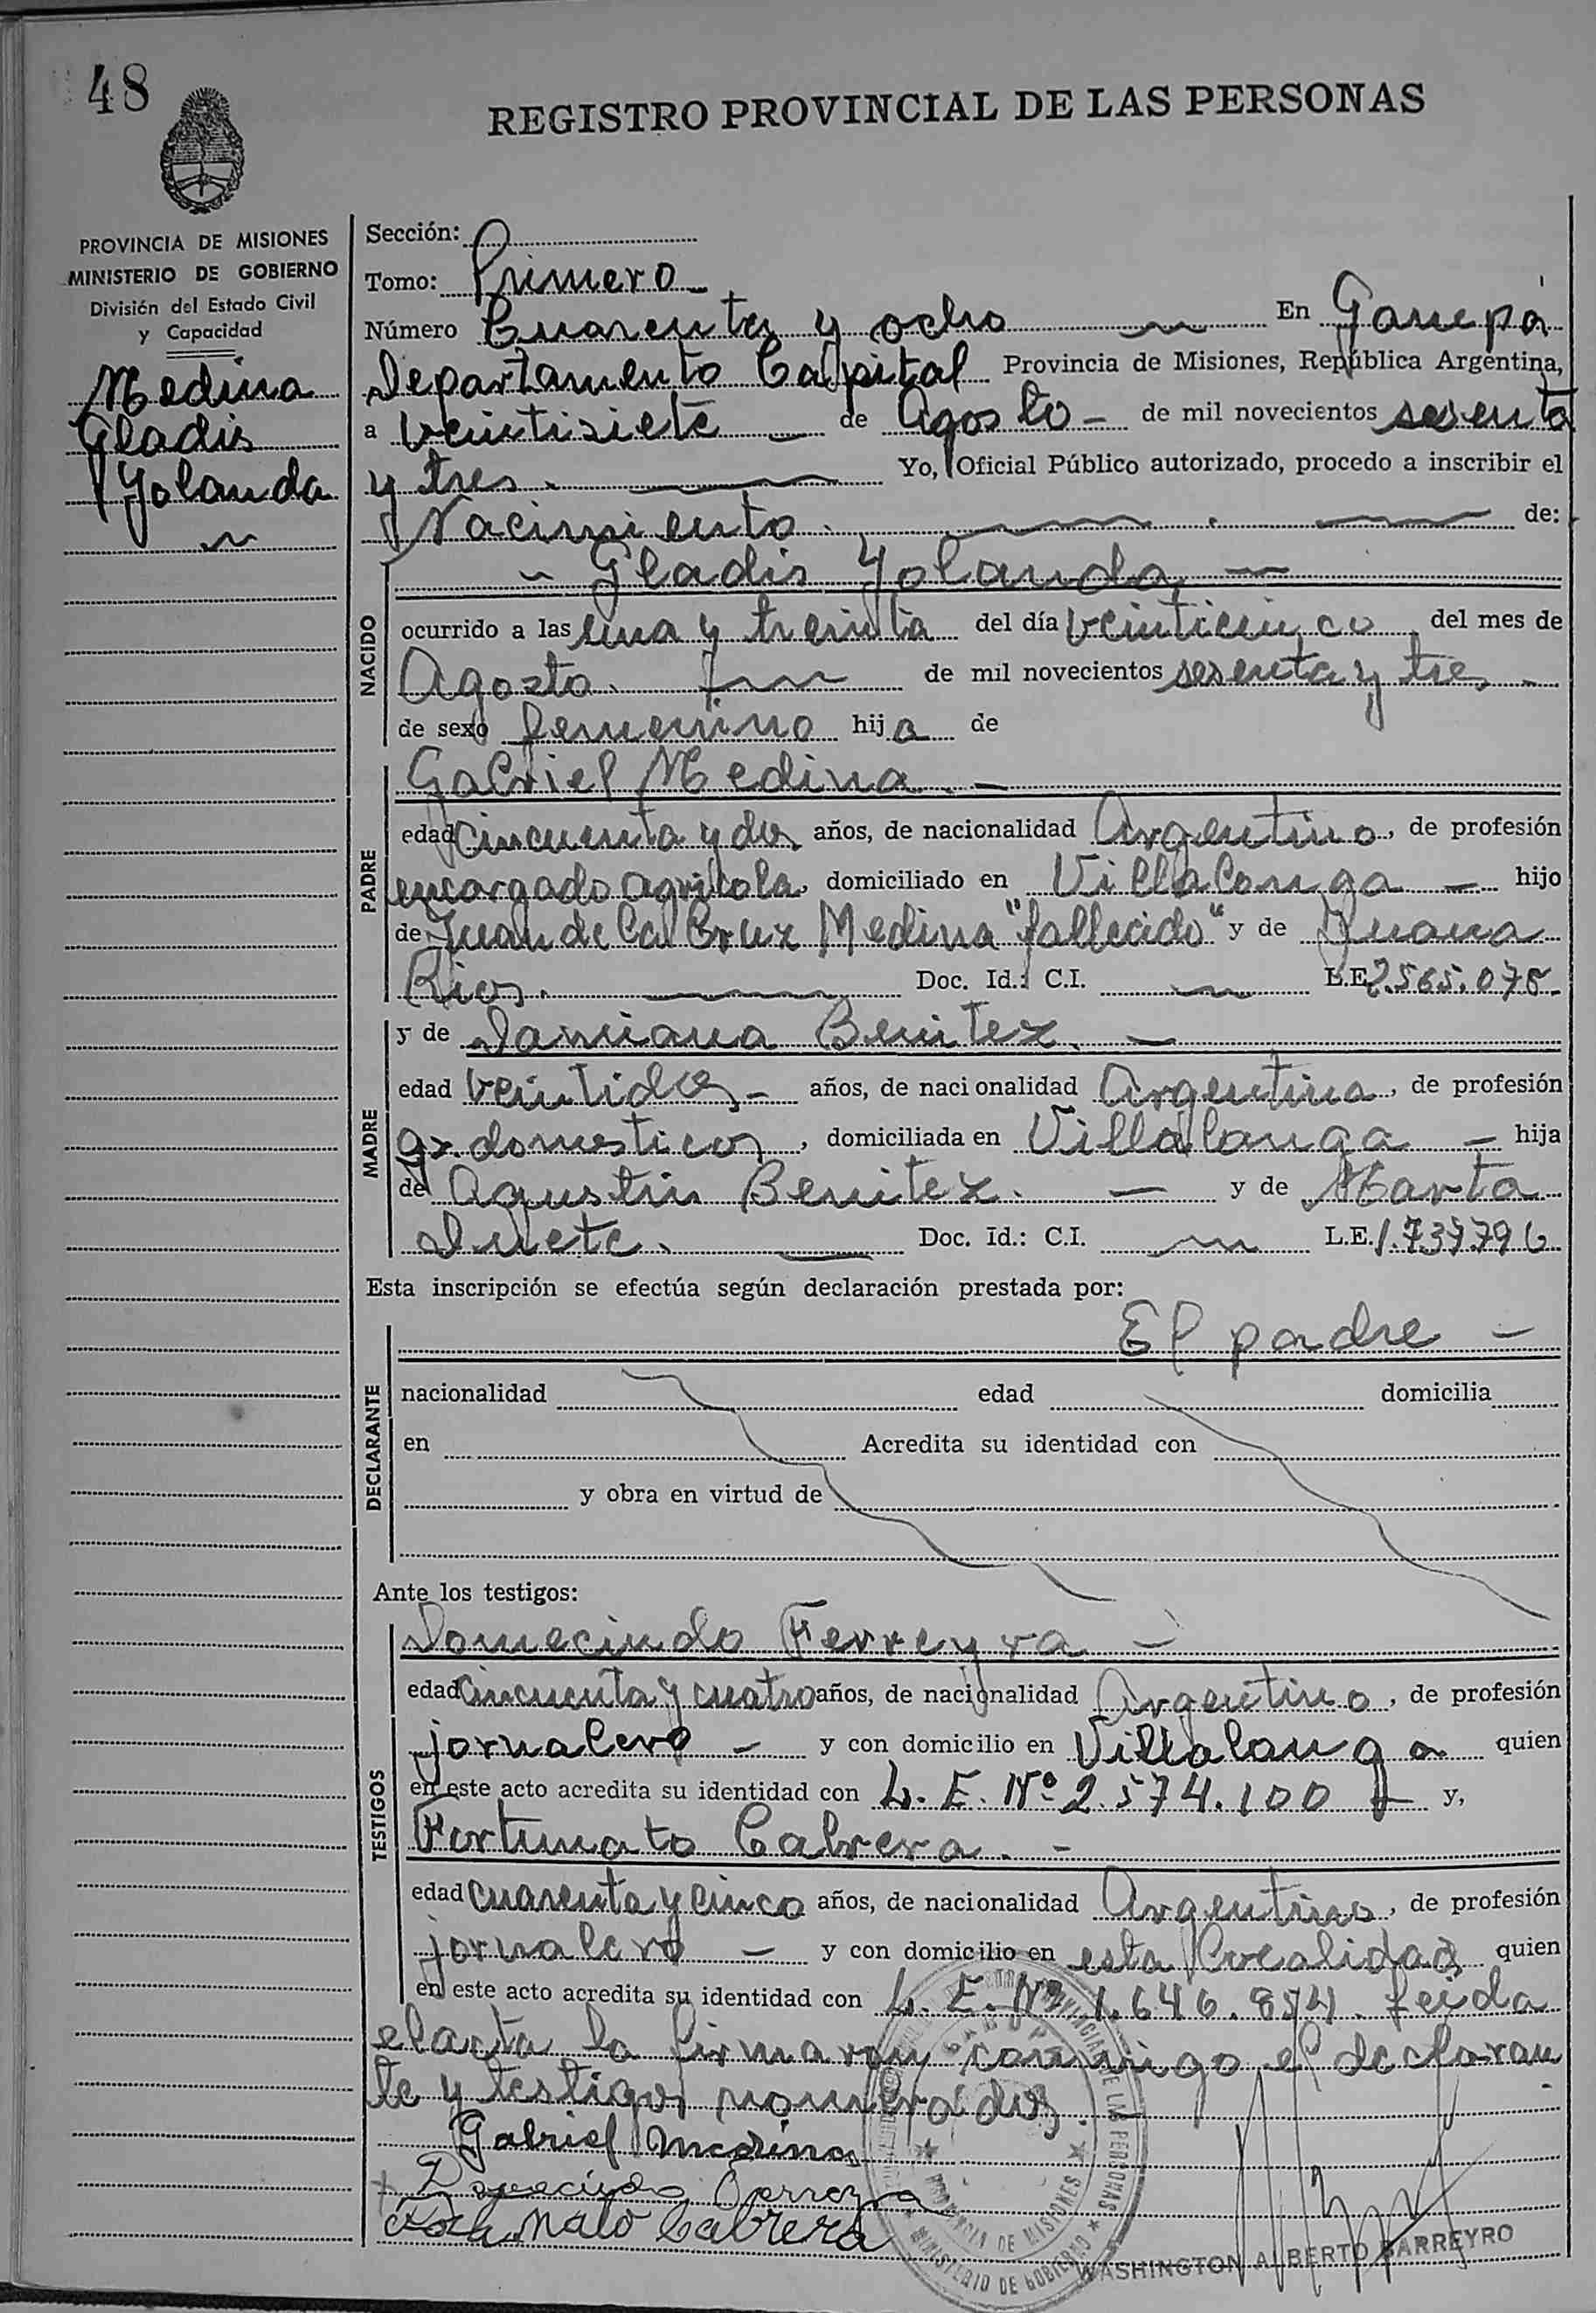 48
REGISTRO PROVINCIAL DE LAS PERSONAS
PROVINCIA DE MISIONES
MINISTERIO DE GOBIERNO
División del Estado Civil
y Capacidad
Medina
Gladis
Yolanda
Sección:
Tomo: Primero
Número Cuarenta y ocho En Garupá
Departamento Capital Provincia de Misiones, República Argentina,
a veintisiete de Agosto de mil novecientos sesenta
y tres. Yo, Oficial Público autorizado, procedo a inscribir el
Nacimiento. de:
Gladis Yolanda
NACIDO
ocurrido a las una y treinta del día veinticinco del mes de
Agosto. de mil novecientos sesenta y tres
de sexo femenino hija de
PADRE
Gabriel Medina.
edad cincuenta y dos años, de nacionalidad Argentino, de profesión
encargado agricola, domiciliado en Villalonga hijo
de Juan de la Cruz Medina "fallecido" y de Juana
Rios. Doc. Id.: C.I. L.E. 2.565.078
MADRE
y de Damiana Benitez.
edad veintidos años, de nacionalidad Argentina, de profesión
qs. domesticos, domiciliada en Villalonga hija
de Agustin Benitez. y de Marta
Duete. Doc. Id.: C.I. L.E. 1.737796
Esta inscripción se efectúa según declaración prestada por:
El padre
DECLARANTE
nacionalidad edad domicilia
en Acredita su identidad con
y obra en virtud de
Ante los testigos:
TESTIGOS
Domecindo Ferreyra
edad cincuenta y cuatro años, de nacionalidad Argentino, de profesión
jornalero y con domicilio en Villalonga quien
en este acto acredita su identidad con L. E. Nº 2.574.100 y,
Fortunato Cabrera.
edad cuarenta y cinco años, de nacionalidad Argentino, de profesión
jornalero y con domicilio en esta localidad quien
en este acto acredita su identidad con L. E. Nº 1.646.854. Leida
el acta la firmaron conmigo el declaran
te y testigos nombrados.
Gabriel Medina
Ferreyra
Cabrera
PROVINCIA DE MISIONES
MINISTERIO DE GOBIERNO
WASHINGTON ALBERTO BARREYRO